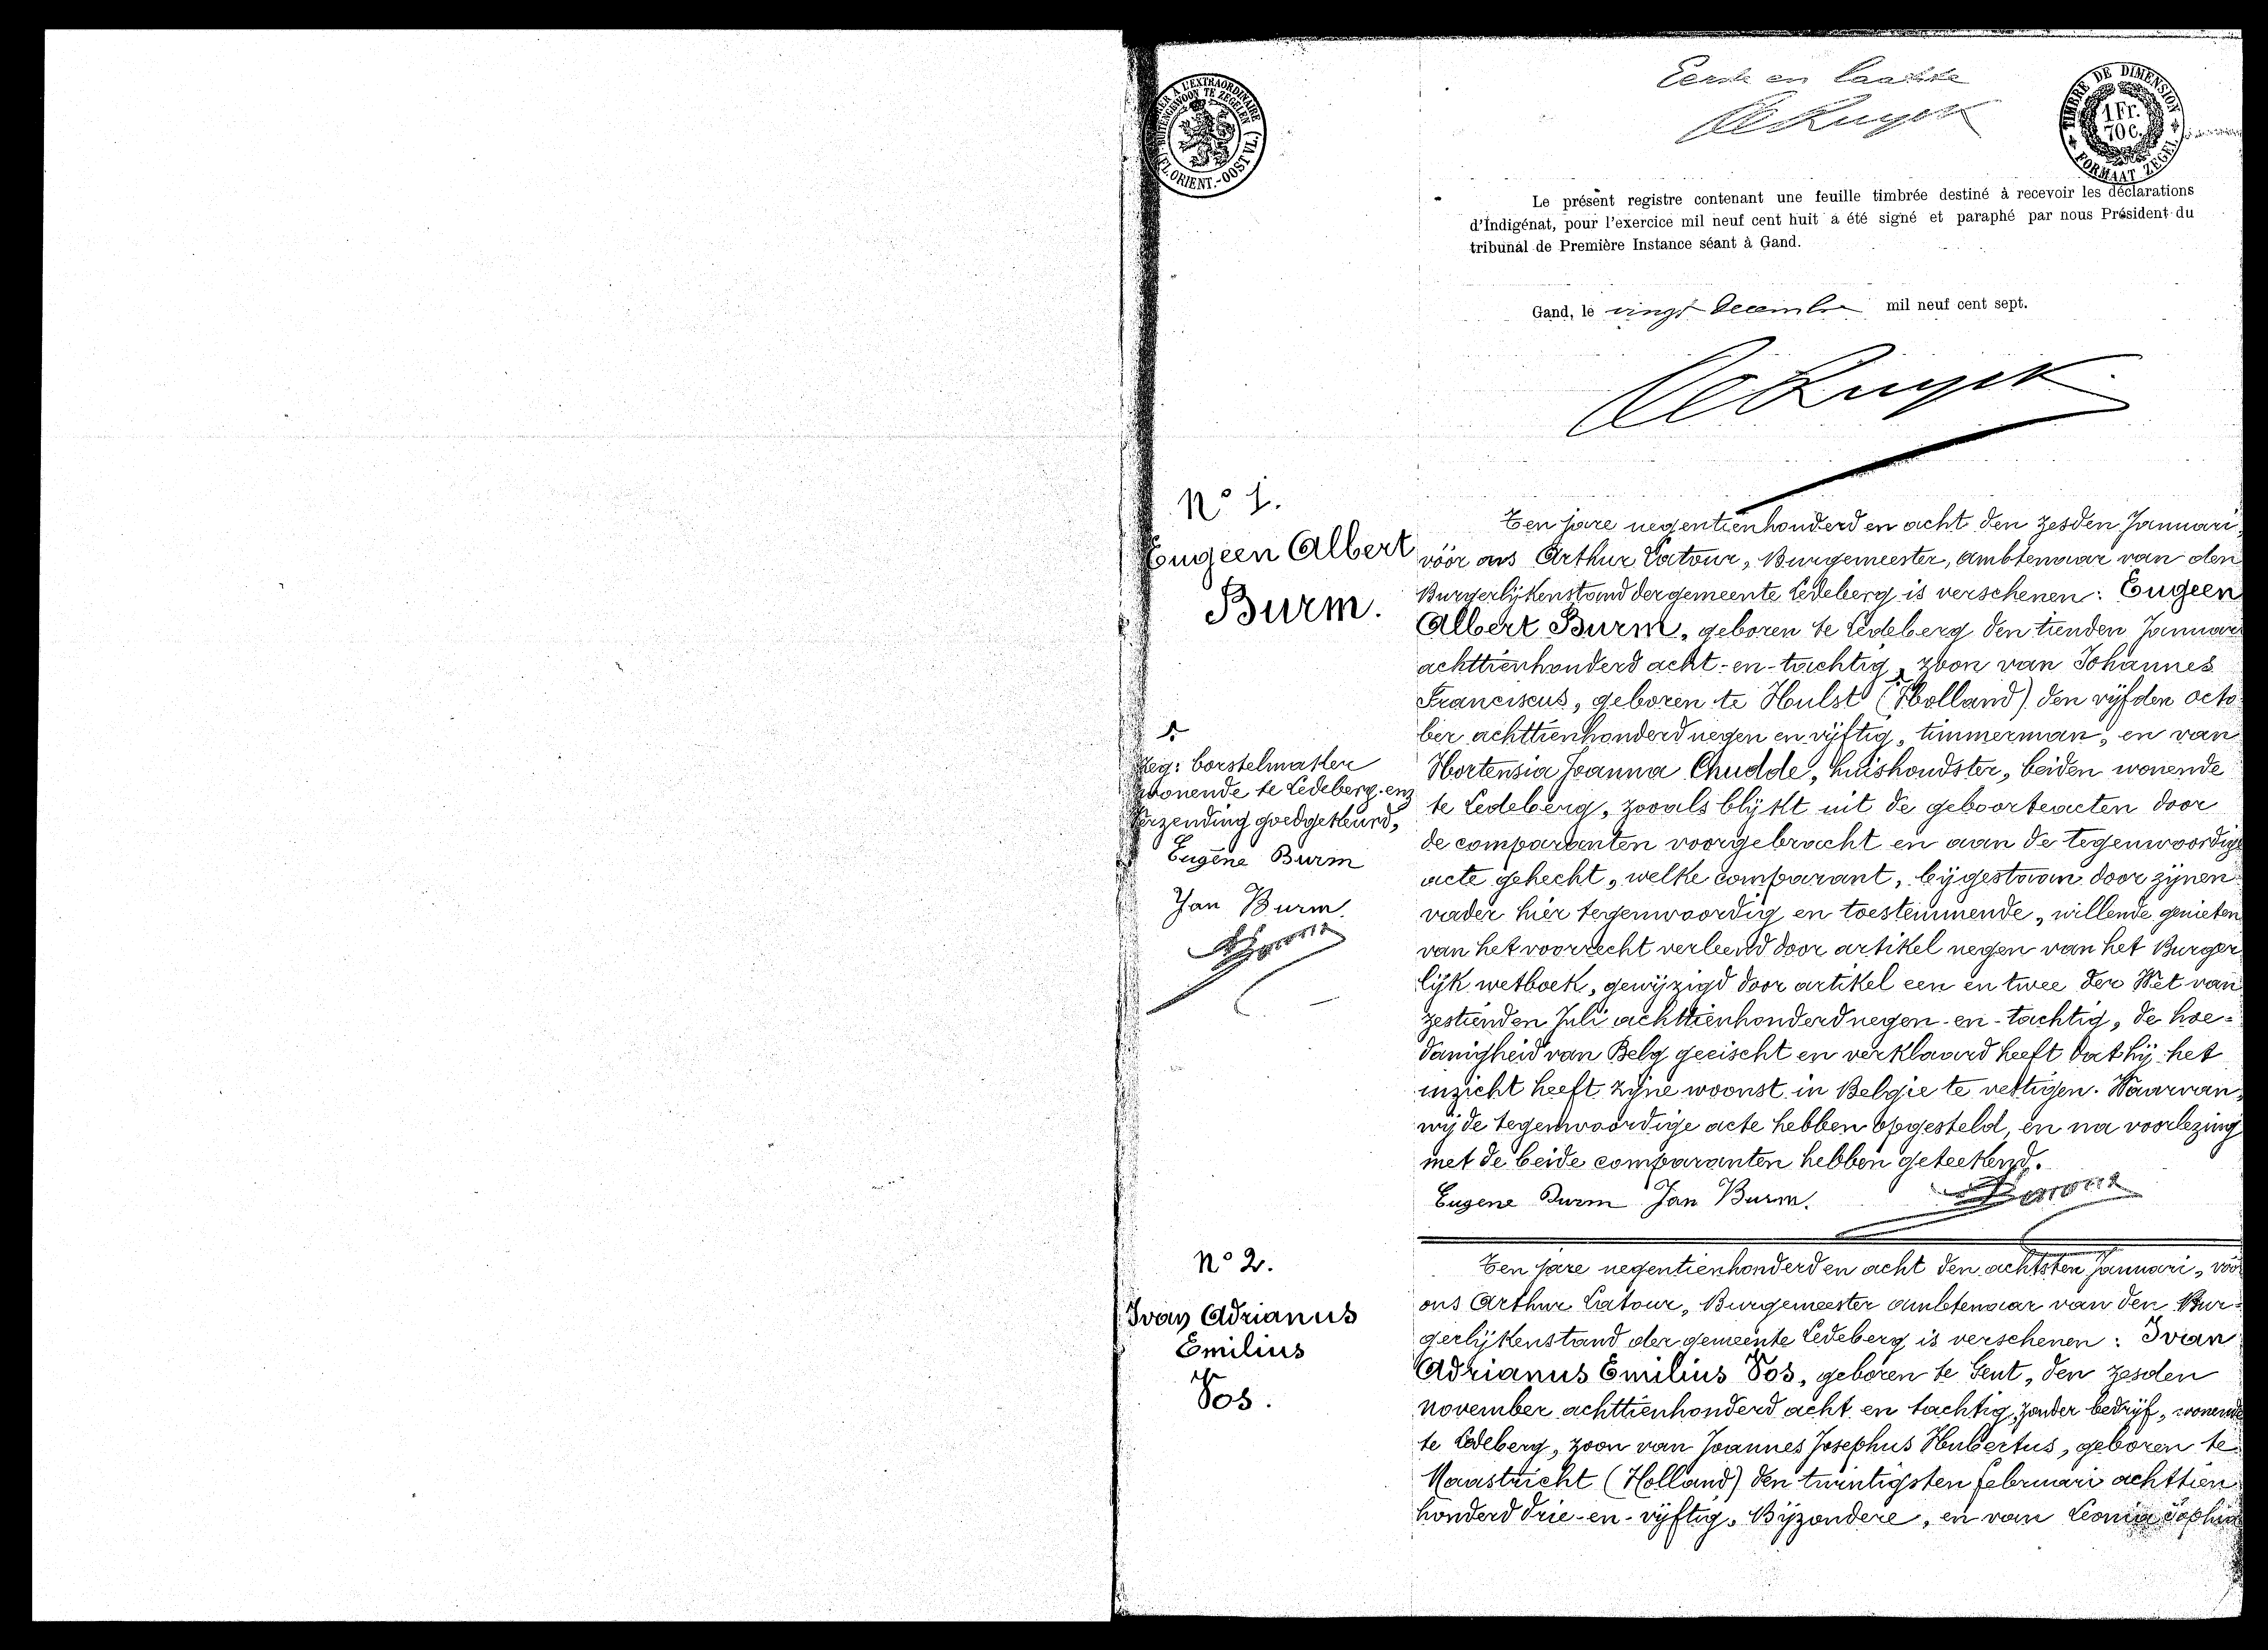 Eerste en laatste
DeRuyck
TIMBRER A L'EXTRAORDINAIRE
BUITENGEWOON TE ZEGELEN
(FL. ORIENT.-OOST VL.)
TIMBRE DE DIMENSION
1 Fr.
70 C.
FORMAAT ZEGEL
Le présent registre contenant une feuille timbrée destiné à recevoir les déclarations
d'Indigénat, pour l'exercice mil neuf cent huit a été signé et paraphé par nous Président du
tribunal de Première Instance séant à Gand.
Gand, le vingt Decembre mil neuf cent sept.
DeRuyck
N° 1.
Eugeen Albert
Burm.
Ten jare negentienhonderd en acht den zesden Januari,
vóór ons Arthur Latour, Burgemeester, ambtenaar van den
Burgerlijkenstand der gemeente Ledeberg is verschenen: Eugeen
Albert Burm, geboren te Ledeberg den tienden Januari
achttienhonderd acht-en-tachtig, zoon van Johannes
Franciscus, geboren te Hulst (Holland) den vijfden octo
ber achttienhonderd negen en vijftig, timmerman, en van
Hortensia Joanna Chudde, huishoudster, beiden wonende
te Ledeberg, zooals blijkt uit de geboorteacten door
de comparanten voorgebracht en aan de tegenwoordige
acte gehecht, welke comparant, bijgestaan door zijnen
vader hier tegenwoordig en toestemmende, willende genieten
van het voorrecht verleend door artikel negen van het Burger
lijk wetboek, gewijzigd door artikel een en twee der Wet van
zestienden Juli achttienhonderd negen-en-tachtig, de hoe=
danigheid van Belg geeischt en verklaard heeft dat hij het
inzicht heeft zijne woonst in Belgie te vestigen. Waarvan,
wij de tegenwoordige acte hebben opgesteld, en na voorlezing
met de beide comparanten hebben geteekend.
Eugene Burm Jan Burm.
Zeg: borstelmaker
wonende te Ledeberg. enz
Verzending goedgekeurd,
Eugène Burm
Jan Burm.
N° 2.
Ivan Adrianus
Emilius
Vos.
Ten jare negentienhonderd en acht den achtsten Januari, vóór
ons Arthur Latour, Burgemeester ambtenaar van den Bur=
gerlijkenstand der gemeente Ledeberg is verschenen: Ivan
Adrianus Emilius Vos, geboren te Gent, den zesden
november achttienhonderd acht en tachtig, zonder bedrijf, wonende
te Ledeberg, zoon van Joannes Josephus Hubertus, geboren te
Maastricht (Holland) den twintigsten februari achttien
honderd drie-en-vijftig, Bijzondere, en van Leonia Sophia